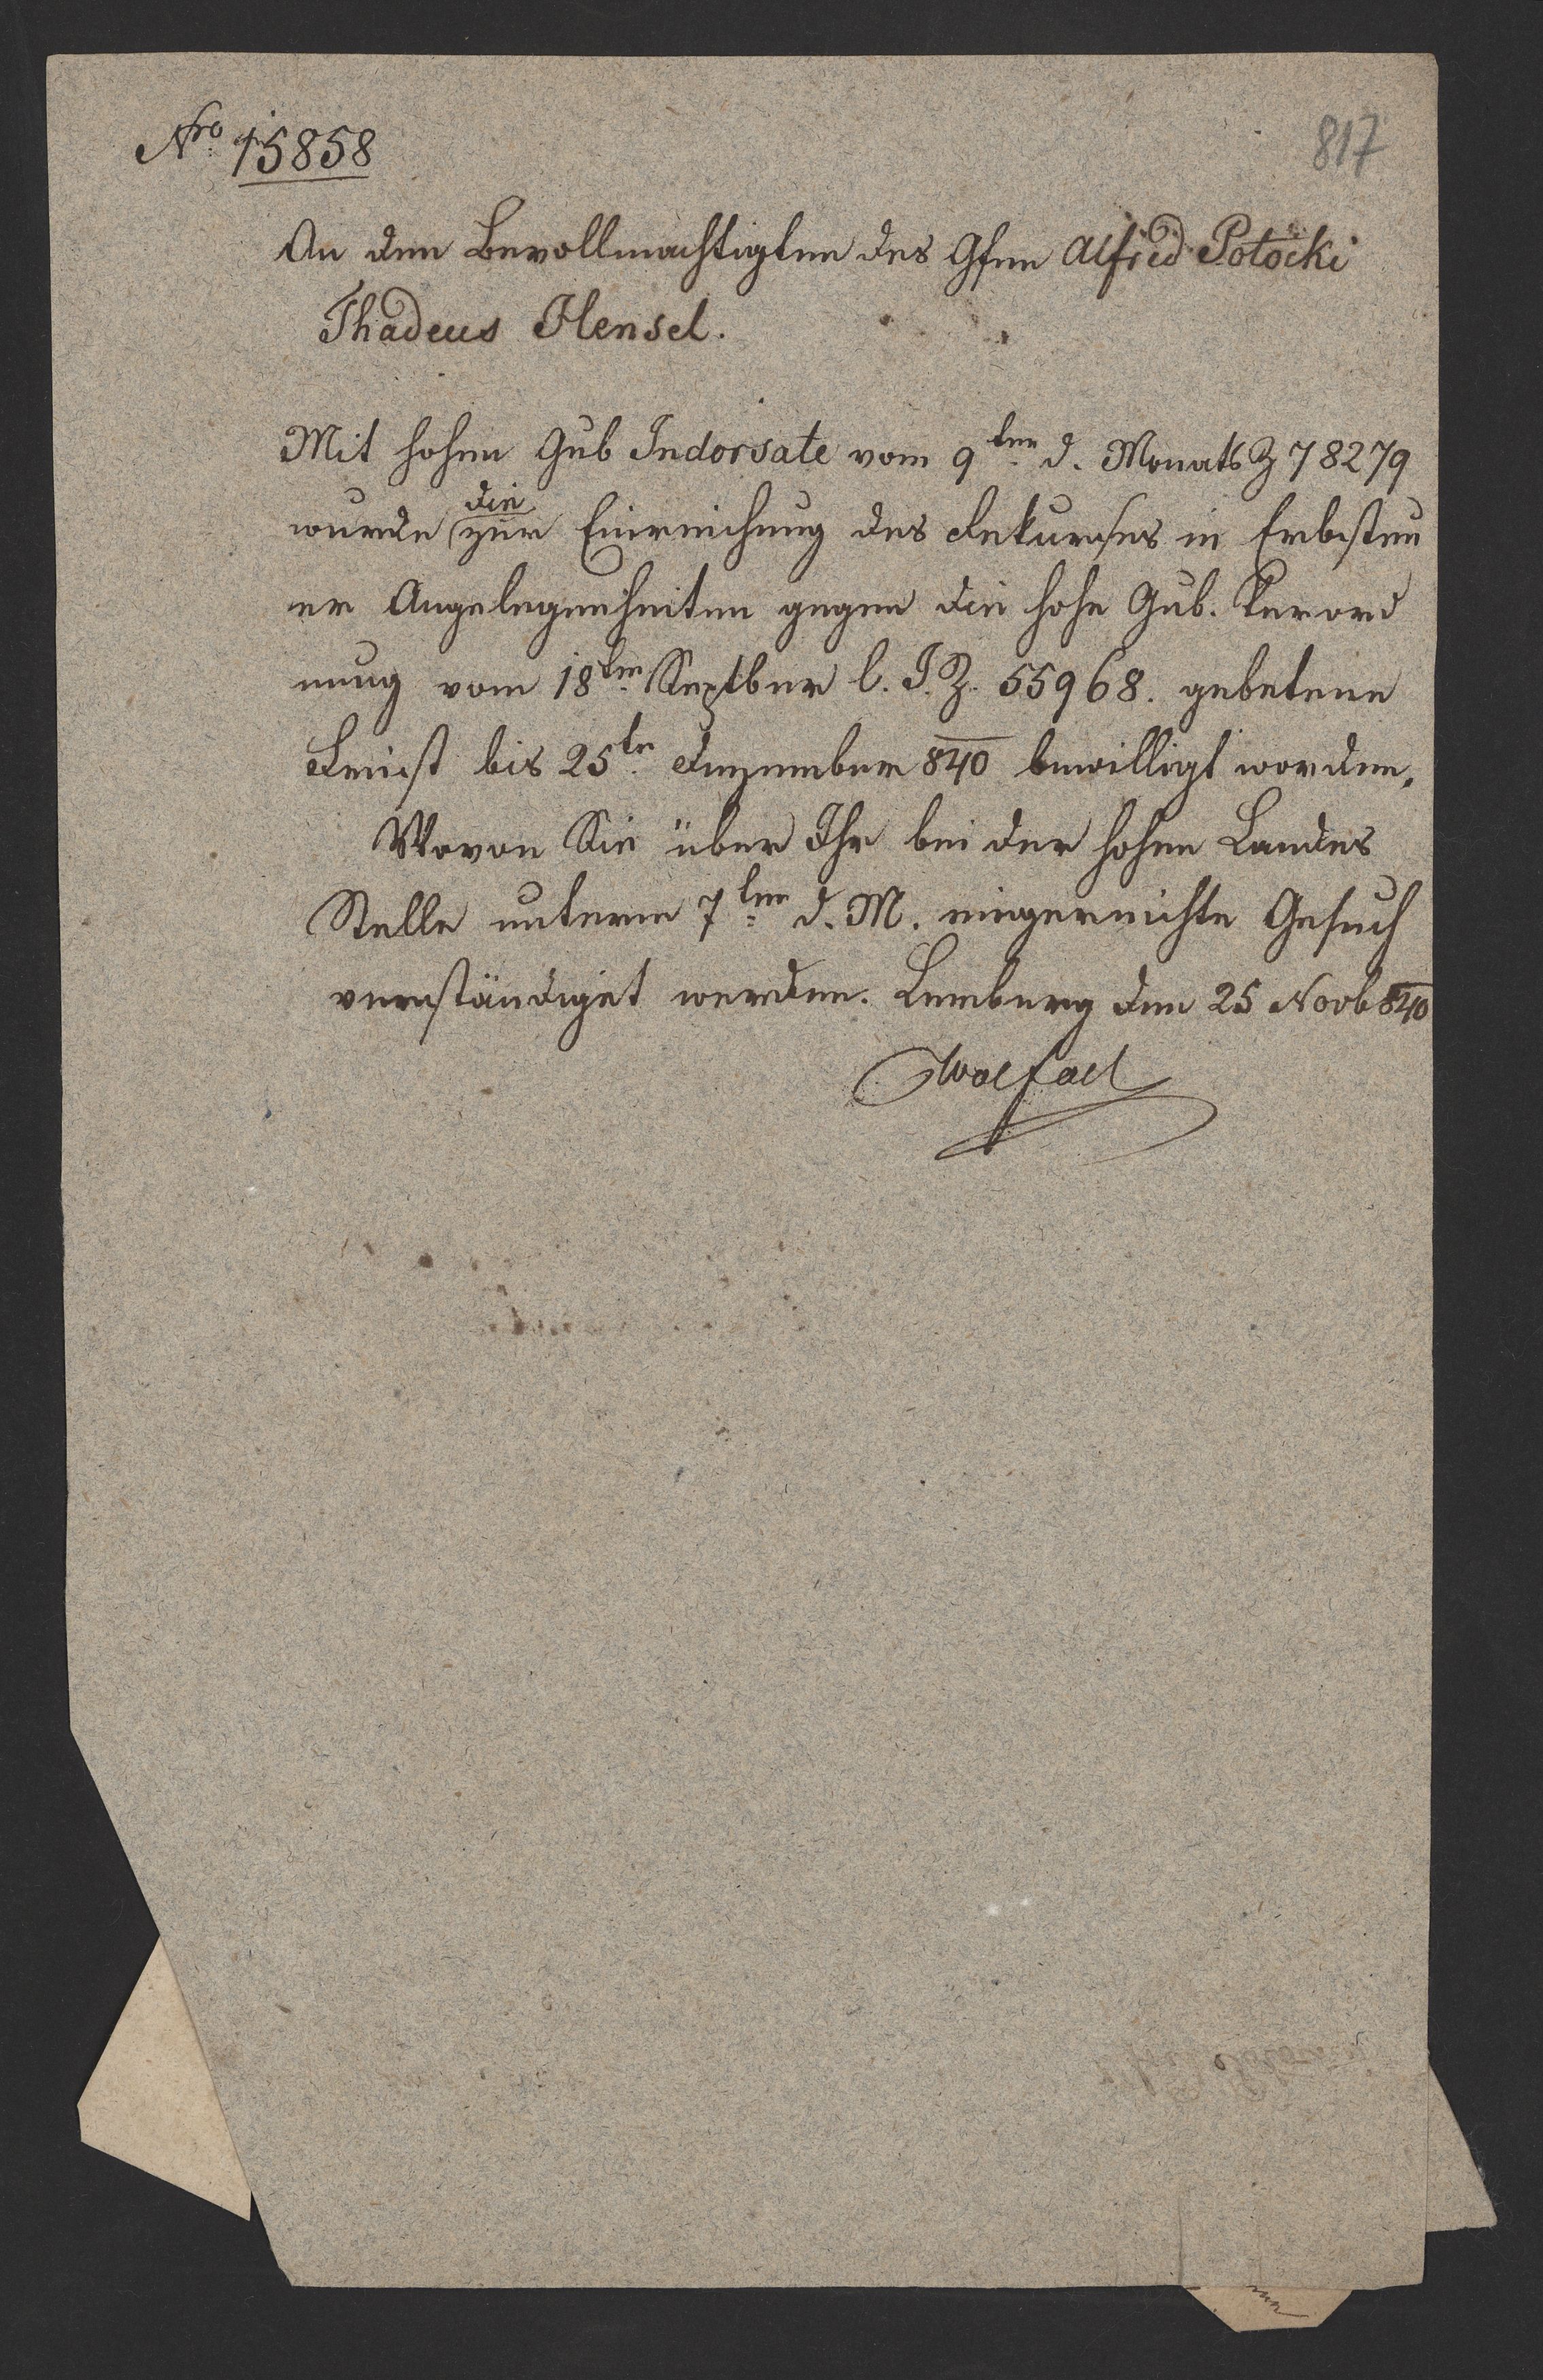 Nro 15858
817
An den Bevollmächtigten des Gfen Alfred Potocki
Thadeus Hensel.
Mit hohen Gub Indorsate vom 9ten d. Monats Z 78279
die
wurde zur Einreichung des Rekurses in Erbsteu
er Angelegenheiten gegen die hohe Gub. Verord
nung vom 18ten Septber l. J. Z. 55968. gebetene
Frist bis 25te Dezember 840 bewilligt worden.
Wovon Sie über Ihr bei der hohen Landes
Stelle unterm 7ten d. M. eingereichte Gesuch
verständiget werden. Lemberg den 25 Novb 840